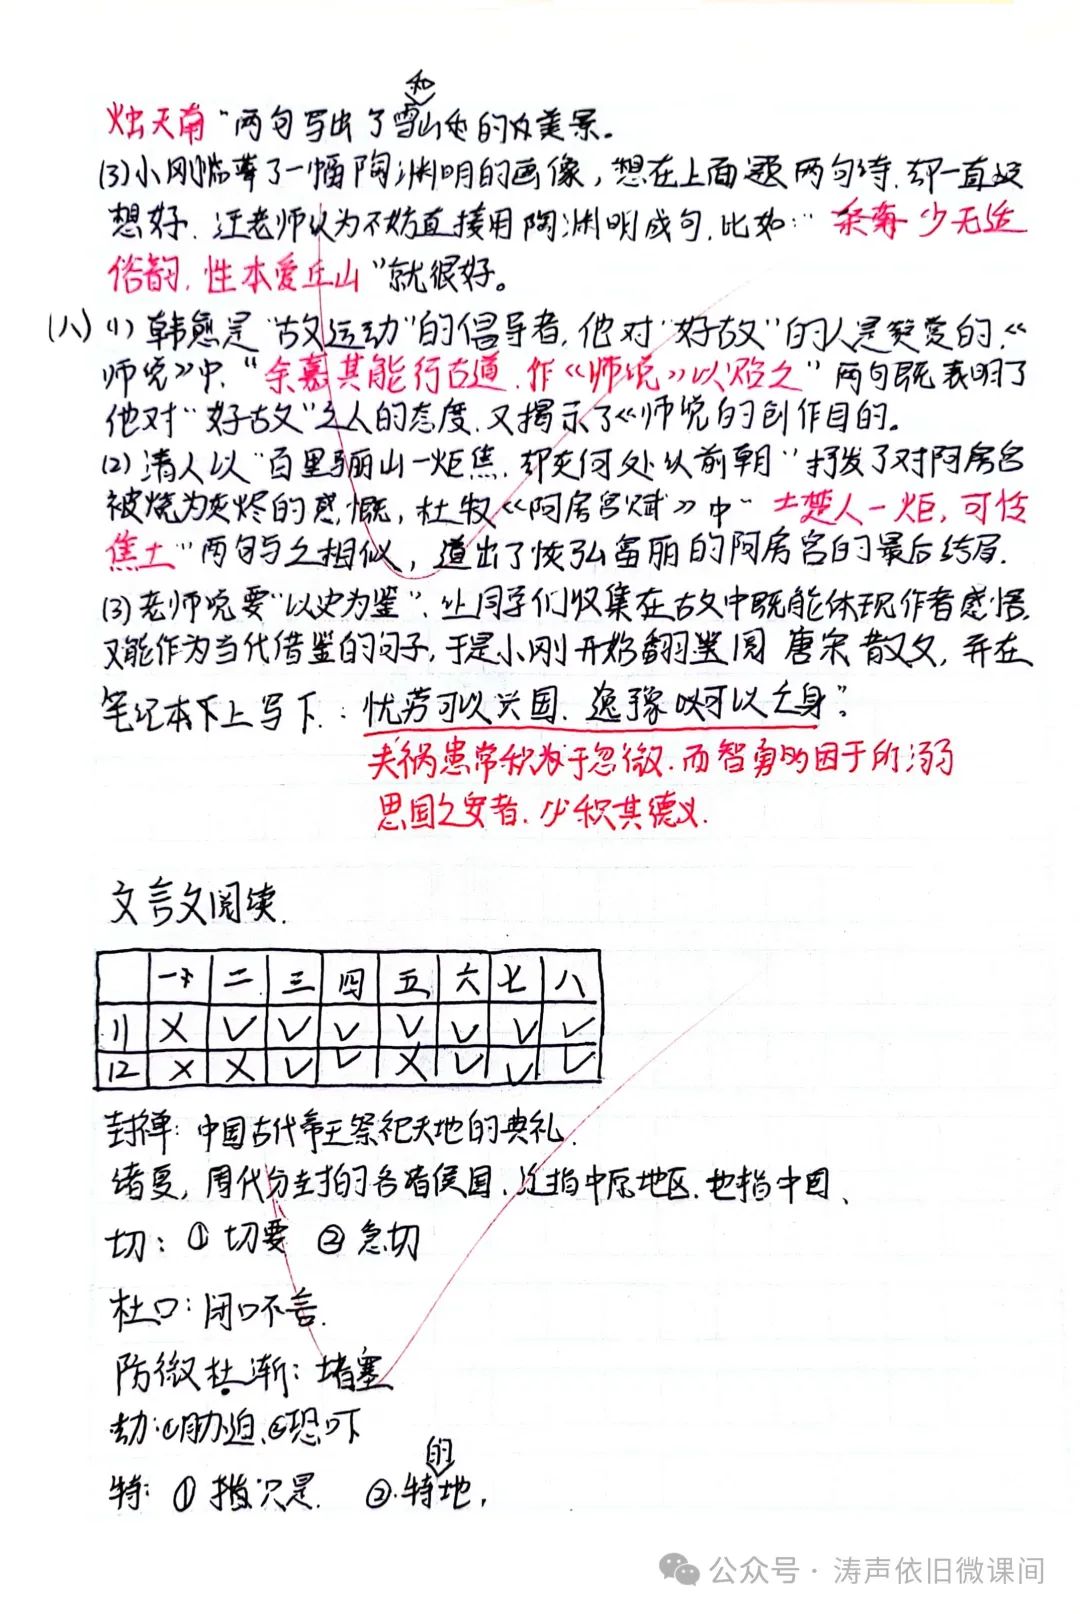 和
烛天南"两句写出了雪山的美景。
(3)小刚临摹了一幅陶渊明的画像，想在上面题两句诗，却一直没
想好，汪老师认为不妨直接用陶渊明成句，比如："少无适
俗韵，性本爱丘山"就很好。
(八)(1)韩愈是"古文运动"的倡导者，他对"好古文"的人是赞赏的，《
师说》中，"余嘉其能行古道，作《师说》以贻之"两句既表明了
他对"好古文"之人的态度，又揭示了《师说的创作目的。
(2)清人以"百里骊山一炬焦，却灰何处认前朝"抒发了对阿房宫
被烧为灰烬的感慨，杜牧《阿房宫赋》中"楚人一炬，可怜
焦土"两句与之相似，道出了恢弘富丽的阿房宫的最后结局。
(3)老师说要"以史为鉴"，让同学们收集在古文中既能体现作者感悟，
又能作为当代借鉴的句子，于是小刚开始翻阅唐宋散文，并在
笔记本下上写下：忧劳可以兴国，逸豫可以亡身"。
夫祸患常积于忽微，而智勇多困于所溺
思国之安者，必积其德义。
文言文阅读.
一 二 三 四 五 六 七 八
11 × ✓ ✓ ✓ ✓ ✓ ✓ ✓
12 × × ✓ ✓ × ✓ ✓ ✓
封禅：中国古代帝王祭祀天地的典礼.
诸夏，周代分封的各诸侯国，泛指中原地区，也指中国、
切：①切要 ②急切
杜口：闭口不言.
防微杜渐：堵塞
劫：①胁迫、②恐吓
的
特：①指只是. ②.特地，
公众号·涛声依旧微课间